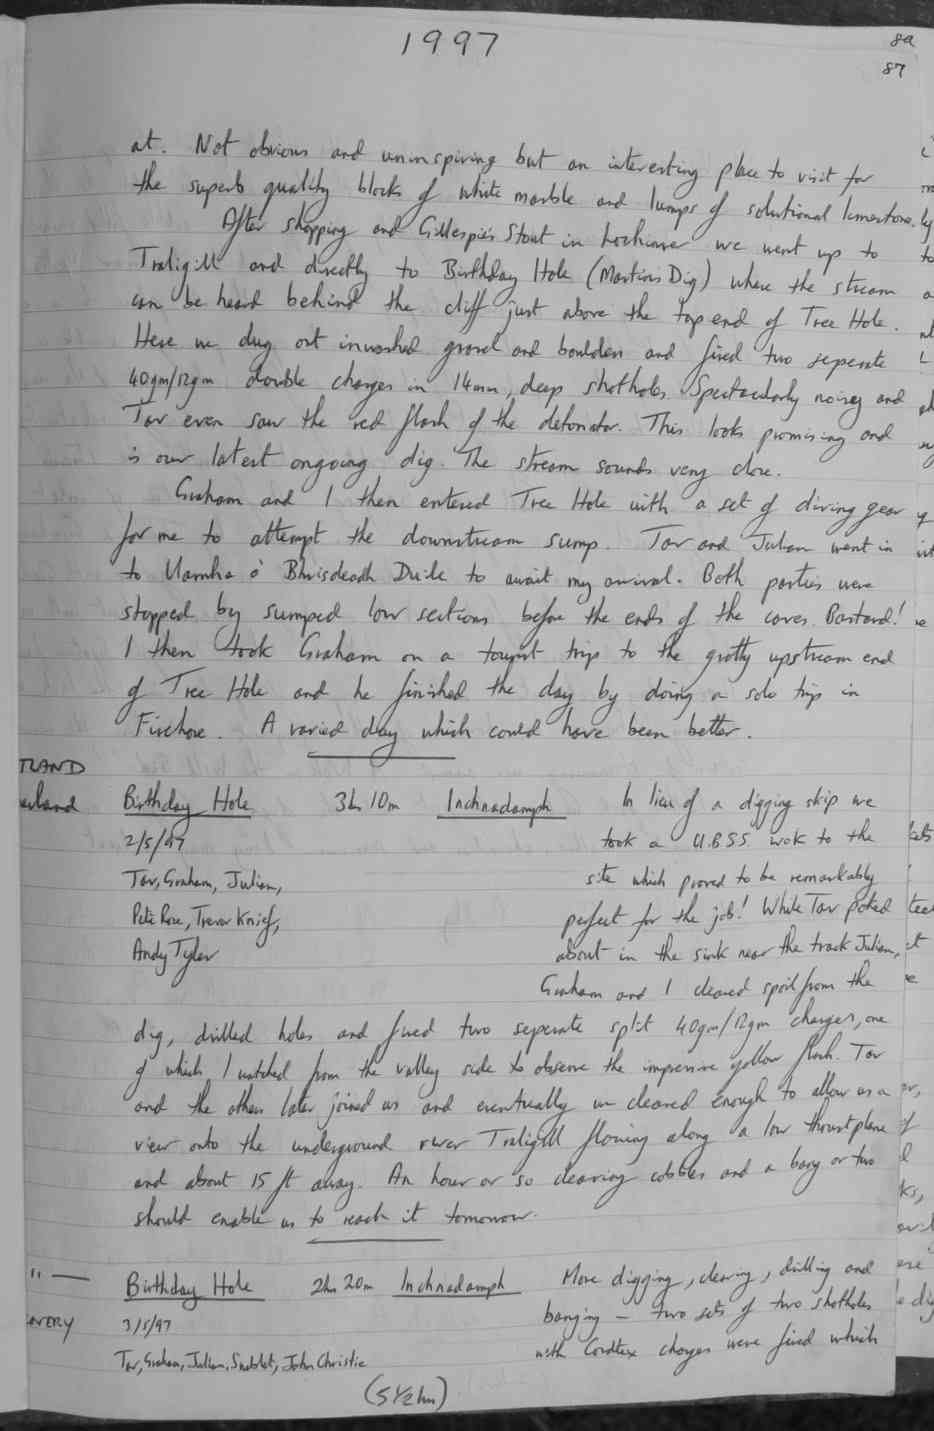 1997
89
87
at. Not obvious and uninspiring but an interesting place to visit for
the superb quality blocks of white marble and lumps of solutional limestone.
After shopping and Gillespie's Stout in Lochinver we went up to
Traligill and directly to Birthday Hole (Martin's Dig) where the stream
can be heard behind the cliff just above the top end of Tree Hole.
Here we dug out inwashed gravel and boulders and fired two seperate
40gm/12gm double charges in 14mm, deep shotholes. Spectacularly noisy and
Tav even saw the red flash of the detonator. This looks promising and
is our latest ongoing dig. The stream sounds very close.
Graham and I then entered Tree Hole with a set of diving gear
for me to attempt the downstream sump. Tav and Julian went in
to Uamha ó Bhrisdeadh Duile to await my arrival. Both parties were
stopped by sumped low sections before the ends of the caves. Bastard!
I then took Graham on a tourist trip to the grotty upstream end
of Tree Hole and he finished the day by doing a solo trip in
Firehose. A varied day which could have been better.
TLAND
erland
Birthday Hole 3hr 10m Inchnadamph In lieu of a digging skip we
2/5/97 took a U.B.S.S. wok to the
Tav, Graham, Julian, site which proved to be remarkably
Pete Rose, Trevor Knief, perfect for the job! While Tav poked
Andy Tyler about in the sink near the track Julian,
Graham and I cleared spoil from the
dig, drilled holes and fired two seperate split 40gm/12gm charges, one
of which I watched from the valley side to observe the impressive yellow flash. Tav
and the others later joined us and eventually we cleared enough to allow us a
view onto the underground river Traligill flowing along a low thrust plane
and about 15 ft away. An hour or so clearing cobbles and a bang or two
should enable us to reach it tomorrow.
" —
OVERY
Birthday Hole 2hr 20m Inchnadamph More digging, clearing, drilling and
3/5/97 banging - two sets of two shotholes
Tav, Graham, Julian, Snablet, John Christie with Cordtex charges were fired which
(5½hrs)